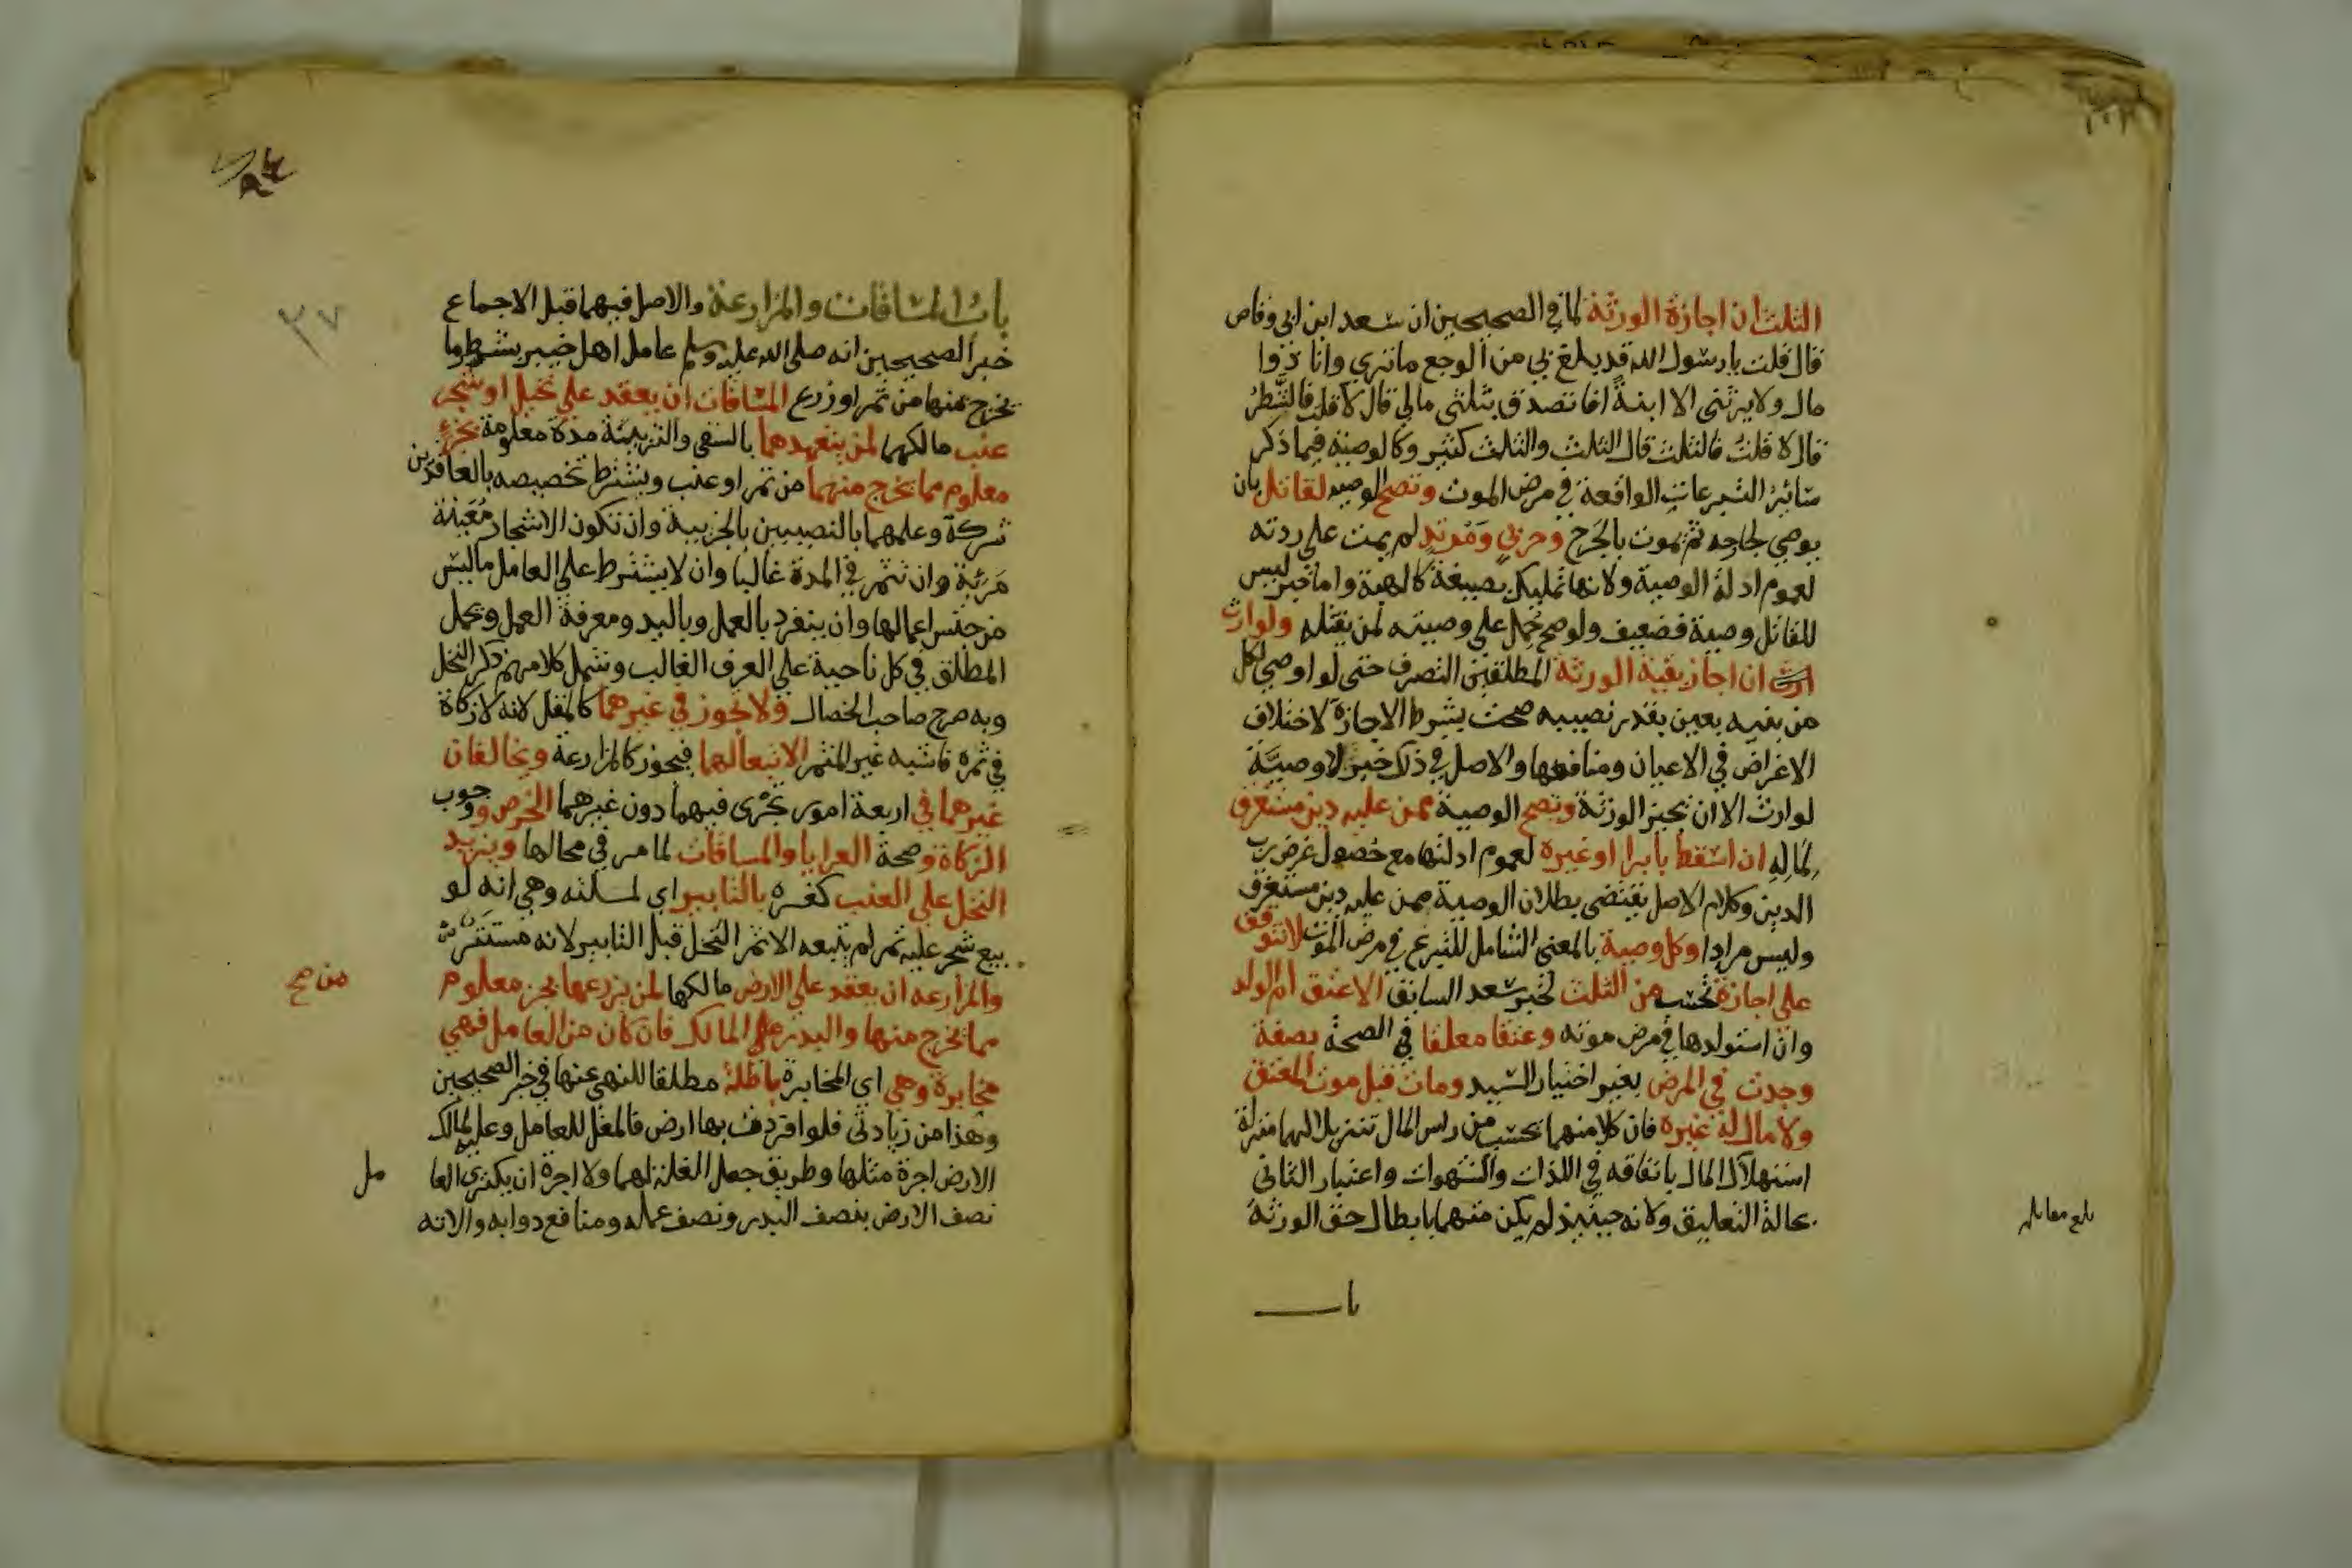 الثلث ان اجازة الورثة لما في الصحيحين ان سعد ابن ابي وقاص
قال قلت يا رسول الله قد بلغ بي من الوجع ما تري وانا ذوا
مال ولا يرثني الا ابنة افاتصدق بثلثي مالي قال لا قلت فالشَّطرُ
قال لا قلت فالثلث قال الثلث والثلث كثير وكالوصية فيما ذكر
سائر التبرعات الواقعة في مرض الموت وتصح الوصيه لقاتل بان
يوصي لجارحه ثم يموت بالجَرح وحربي ومرتد لم يمت علي ردته
لعموم ادلة الوصية ولانها تمليك بصيغة كالهبة واما خبر ليس
للقاتل وصية فضعيف ولو صح حُمل علي وصيته لمن يقتله ولوارث
ارث ان اجاز بقية الورثة المطلقين التصرف حتى لو اوصي لكل
من بنيه بعين بقدر نصيبه صحت بشرط الاجازة لاختلاف
الاغراض في الاعيان ومنافعها والاصل في ذلك خبر لا وصيَّة
لوارث الا ان تجيز الورثة وتصح الوصية ممن عليه دين مستغرق
لمالِهِ ان اسقط بابرا او غيره لعموم ادلتها مع حصول غرض رب
الدين وكلام الاصل يقتضي بطلان الوصية ممن عليه دين مستغرق
وليس مرادا وكل وصية بالمعنى الشامل للتبرع في مرض الموت لا تتوقف
علي اجازة تحتسب من الثلث لخبر سعد السابق الا عتق ام الولد
وان استولدها في مرض موته وعتقا معلقا في الصحة بصفة
وجدت في المرض بغير اختيار السيد ومات قبل موت المعتق
ولا مال له غيره فان كلا منهما تحتسب من راس المال تنزيلا لهما منزلة
استهلاك المال بانفاقه في اللذات والشهوات واعتبار الثاني
بحالة التعليق ولانه حينيذ لم يكن متهما بابطال حق الورثة
بلغ مقابله
باب
٣٧
باب المساقات والمزارعة والاصل فيهما قبل الاجماع
خبر الصحيحين انه صلي الله عليه وسلم عامل اهل خيبر بشطر ما
يخرج منها من ثمر او زرع المساقات ان يعقد علي نخيل او شجر
عنب مالكها لمن يتعهدهما بالسقي والتربية مدة معلومة بجزء
معلوم مما يخرج منهما من ثمر او عنب ويشترط تخصيصه بالعاقدين
شركة وعلمهما بالنصيبين بالجزيية وان تكون الاشجار مُعَينة
مَرئية وان تثمر في المدة غالبا وان لا يشترط علي العامل ما ليس
من جنس اعمالها وان ينفرد بالعمل وباليد ومعرفة العمل وحمل
المطلق في كل ناحية علي العرف الغالب وشمل كلامهم ذكر النخل
وبه صرح صاحب الخصال ولا تجوز في غيرهما كالمقل لانه لا زكاة
في ثمره فاشبه غير المثمر الا تبعا لهما فيجوز كالمزارعة ويخالفان
غيرهما في اربعة امور تجرى فيهما دون غيرهما الخرص ووجوب
الزكاة وصحة العرايا والمساقات لما مر في محالها ويزيد
النخل علي العنب كغيره بالتابير اي لمسلته وهي انه لو
بيع شجر عليه ثمر لم يتبعه الا ثمر النخل قبل التابير لانه مستتر
والمزارعه ان يعقد علي الارض مالكها لمن يزرعها بجز معلوم
من صح
مما يخرج منها والبذر علي المالك فان كان من العامل فهي
مخابرة وهي اي المخابرة باطلة مطلقا للنهي عنها في خبر الصحيحين
وهذا من زيادتي فلو افردت بها ارض فالمغل للعامل وعليه لمالك
الارض اجرة مثلها وطريق جعل الغلة لهما ولا اجرة ان يكتري العا
مل
نصف الارض بنصف البذر ونصف عمله ومنافع دوابه والاته